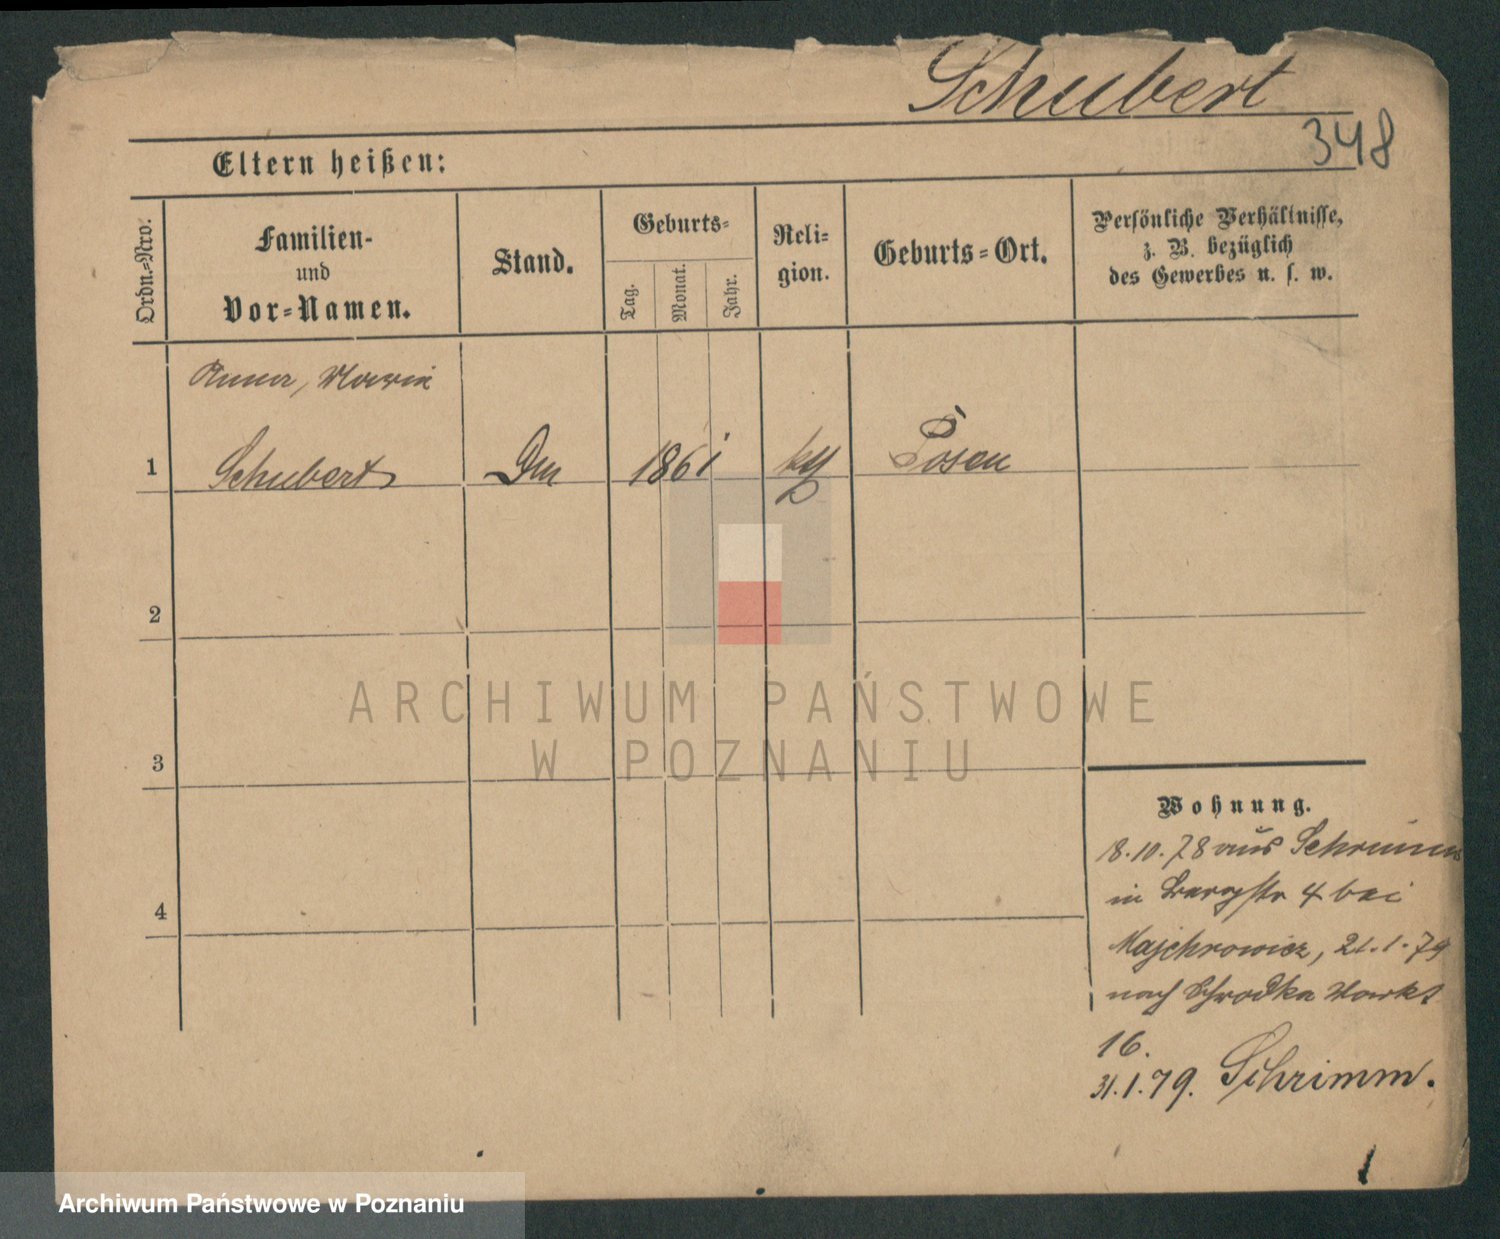 Schubert
348
Eltern heißen:
Ordn.=Nro.
Familien-
und
Vor=Namen.
Stand.
Geburts=
Tag.
Monat.
Jahr.
Reli=
gion.
Geburts=Ort.
Persönliche Verhältnisse,
z. B. bezüglich
des Gewerbes u. s. w.
Anna, Maria
1 Schubert 1861 Posen
2
3
4
ARCHIWUM PAŃSTWOWE
W POZNANIU
Wohnung.
8.10.78 aus Schrimm
in Bergstr 4 bei
Majchrowicz, 21.1.79
nach Schrodka Markt
16.
31.1.79. Schrimm.
Archiwum Państwowe w Poznaniu